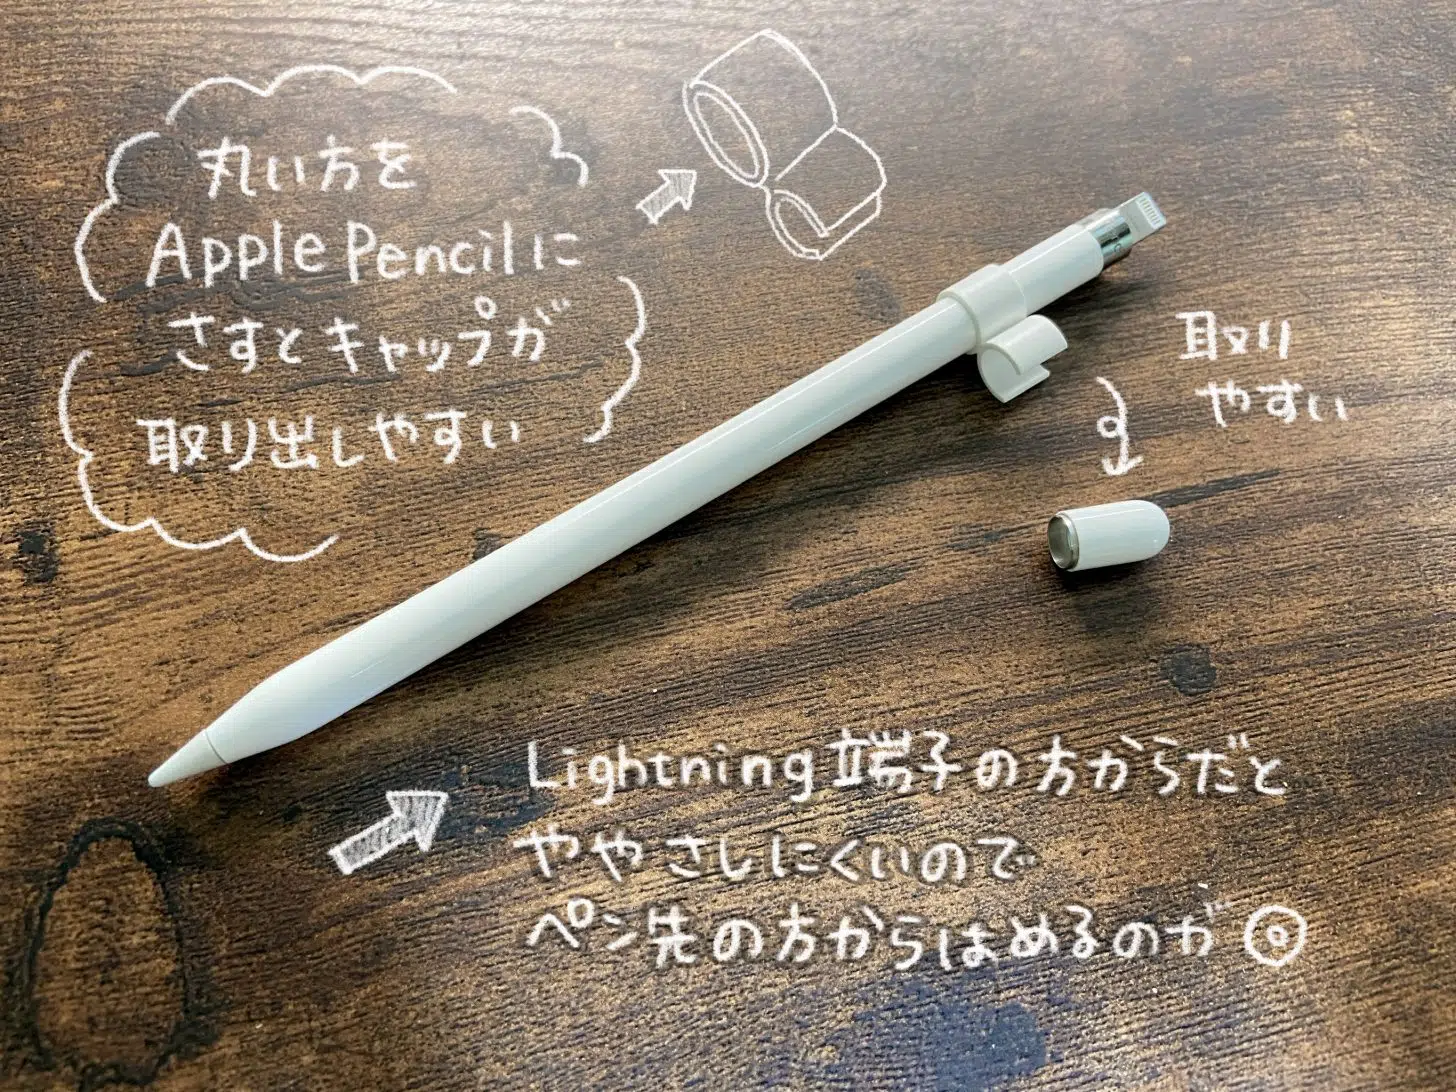 丸い方を
Apple Pencilに
さすとキャップが
取り出しやすい
取り
やすい
Lightning端子の方からだと
ややさしにくいので
ペン先の方からはめるのが◎